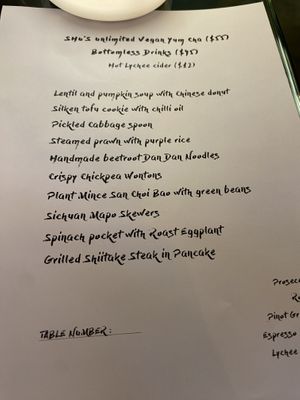 SHU'S unlimited Vegan Yum Cha ($55)
Bottomless Drinks ($45)
Hot Lychee cider ($12)
Lentil and pumpkin soup with Chinese donut
Silken tofu cookie with chilli oil
Pickled Cabbage spoon
Steamed prawn with purple rice
Handmade beetroot Dan Dan Noodles
Crispy Chickpea Wontons
Plant Mince San Choi Bao with green beans
Sichuan Mapo Skewers
Spinach pocket with Roast Eggplant
Grilled Shiitake Steak in Pancake
Prosecc
Ro
Pinot Gr
Espresso
Lychee
TABLE NUMBER: